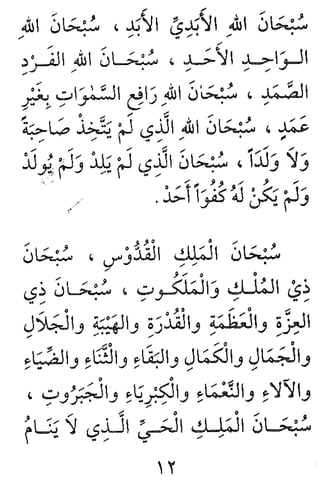 سُبْحَانَ اللهِ الأَبَدِيِّ الأَبَدِ ، سُبْحَانَ اللهِ
الــوَاحِــدِ الأَحَــدِ ، سُبْحَــانَ اللهِ الفَــرْدِ
الصَّمَدِ ، سُبْحَانَ اللهِ رَافِعِ السَّمٰوَاتِ بِغَيْرِ
عَمَدٍ ، سُبْحَانَ اللهِ الَّذِي لَمْ يَتَّخِذْ صَاحِبَةً
وَلاَ وَلَدَاً ، سُبْحَانَ الَّذِي لَمْ يَلِدْ وَلَمْ يُولَدْ
وَلَمْ يَكُنْ لَهُ كُفُوَاً أَحَدْ.
سُبْحَانَ الْمَلِكِ الْقُدُّوْسِ ، سُبْحَانَ
ذِيْ المُلْــكِ وَالْمَلَكُـوتِ ، سُبْحَــانَ ذِي
العِزَّةِ والْعَظَمَةِ والْقُدْرَةِ والْهَيْبَةِ والْجَلاَلِ
والْجَمَالِ والْكَمَالِ والبَقَاءِ والثَّنَاءِ والضِّيَاءِ
والآلاَءِ والنَّعْمَاءِ والْكِبْرِيَاءِ والْجَبَرُوتِ ،
سُبْحَــانَ الْمَلِــكِ الْحَــيِّ الَّــذِي لاَ يَنَــامُ
١٢